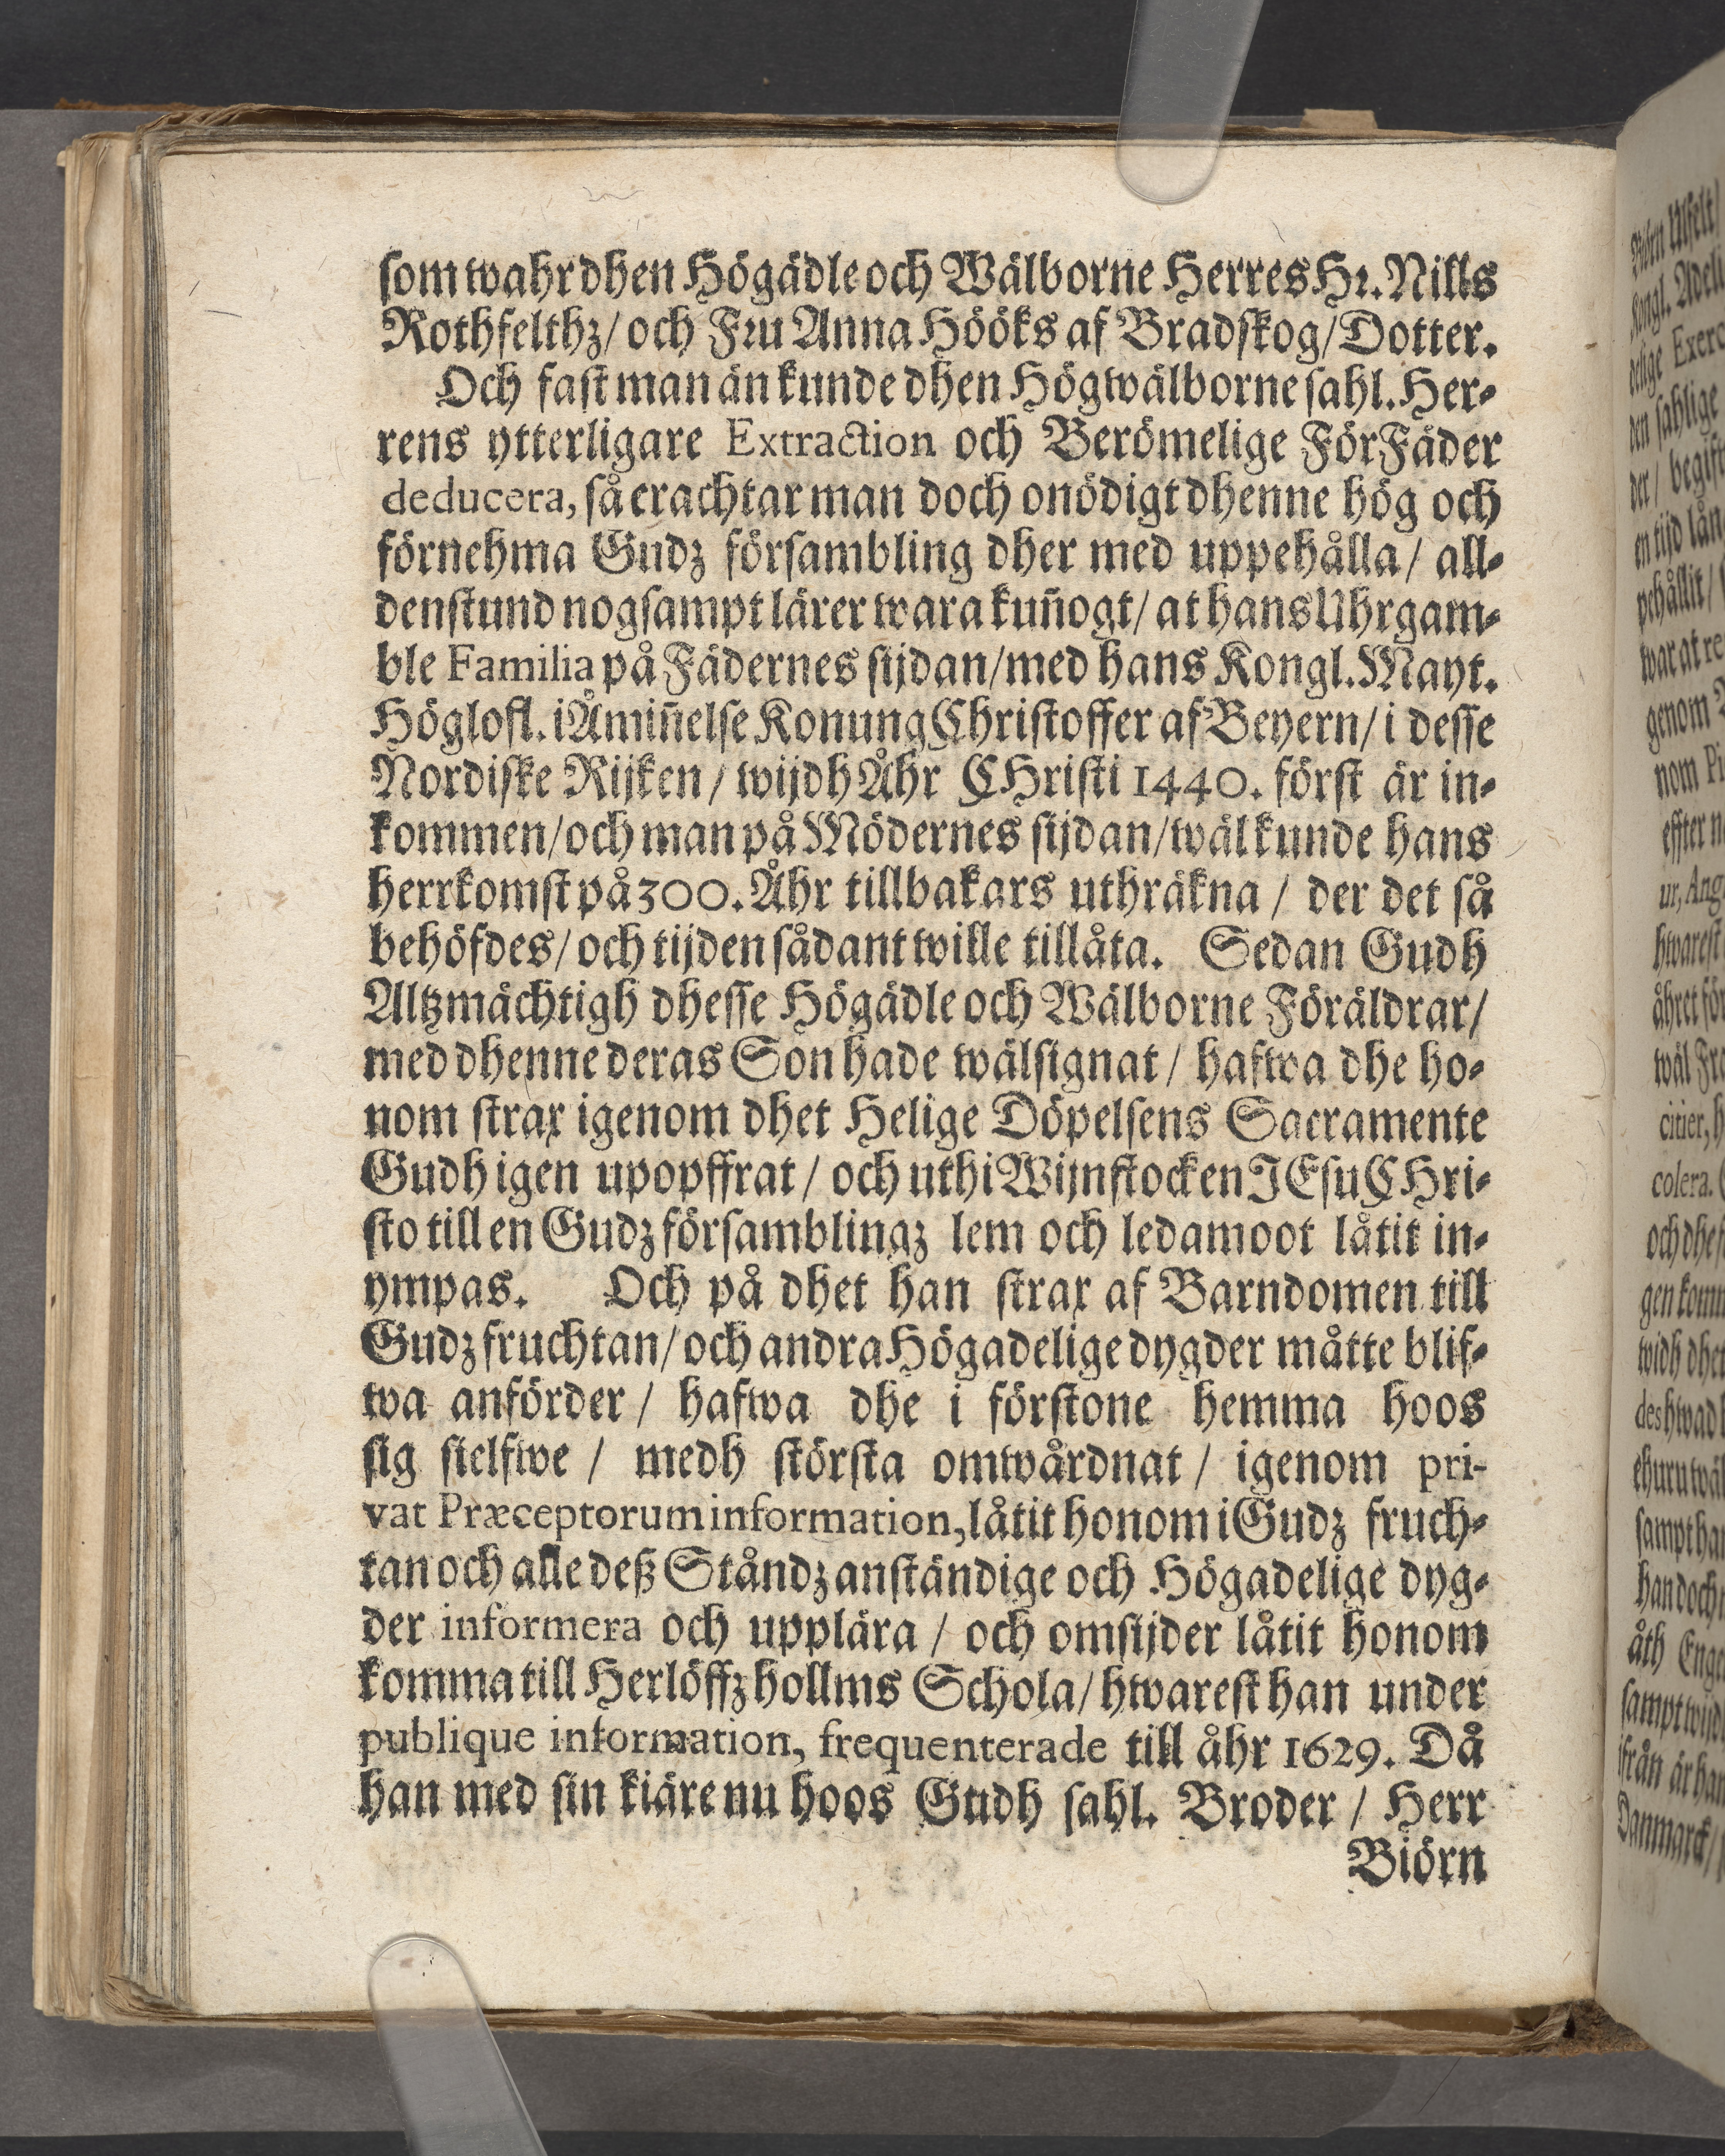 som wahr dhen Högädle och Wälborne Herres Hr. Nills
Rothfelthz/ och Fru Anna Hööks af Bradskog/ Dotter.
Och fast man än kunde dhen Högwälborne sahl. Her-
rens ytterligare Extraction och Berömelige FörFäder
deducera, så erachtar man doch onödigt dhenne hög och
förnehma Gudz försambling dher med uppehålla/ all-
denstund nogsampt lärer wara kuñogt/ at hans Uhrgam-
ble Familia på Fädernes sijdan/ med hans Kongl. Mayt.
Höglofl. i Åmiñelse Konung Christoffer af Beyern/ i desse
Nordiske Rijken/ wijdh Åhr CHristi 1440. först är in-
kommen/ och man på Mödernes sijdan/ wäl kunde hans
herrkomst på 300. Åhr tillbakars uthräkna / der det så
behöfdes/ och tijden sådant wille tillåta. Sedan Gudh
Altzmächtigh dhesse Högädle och Wälborne Föräldrar/
med dhenne deras Son hade wälsignat / hafwa dhe ho-
nom strax igenom dhet Helige Döpelsens Sacramente
Gudh igen upopffrat / och uthi Wijnstocken JEsu CHri-
sto till en Gudz församblingz lem och ledamoot låtit in-
ympas. Och på dhet han strax af Barndomen till
Gudz fruchtan/ och andra Högadelige dygder måtte blif-
wa anförder / hafwa dhe i förstone hemma hoos
sig sielfwe / medh största omwårdnat / igenom pri-
vat Præceptorum information, låtit honom i Gudz fruch-
tan och alle deß Ståndz anständige och Högadelige dyg-
der informera och upplära / och omsijder låtit honom
komma till Herlöffzhollms Schola/ hwarest han under
publique information, frequenterade till åhr 1629. Då
han med sin kiäre nu hoos Gudh sahl. Broder / Herr
Biörn